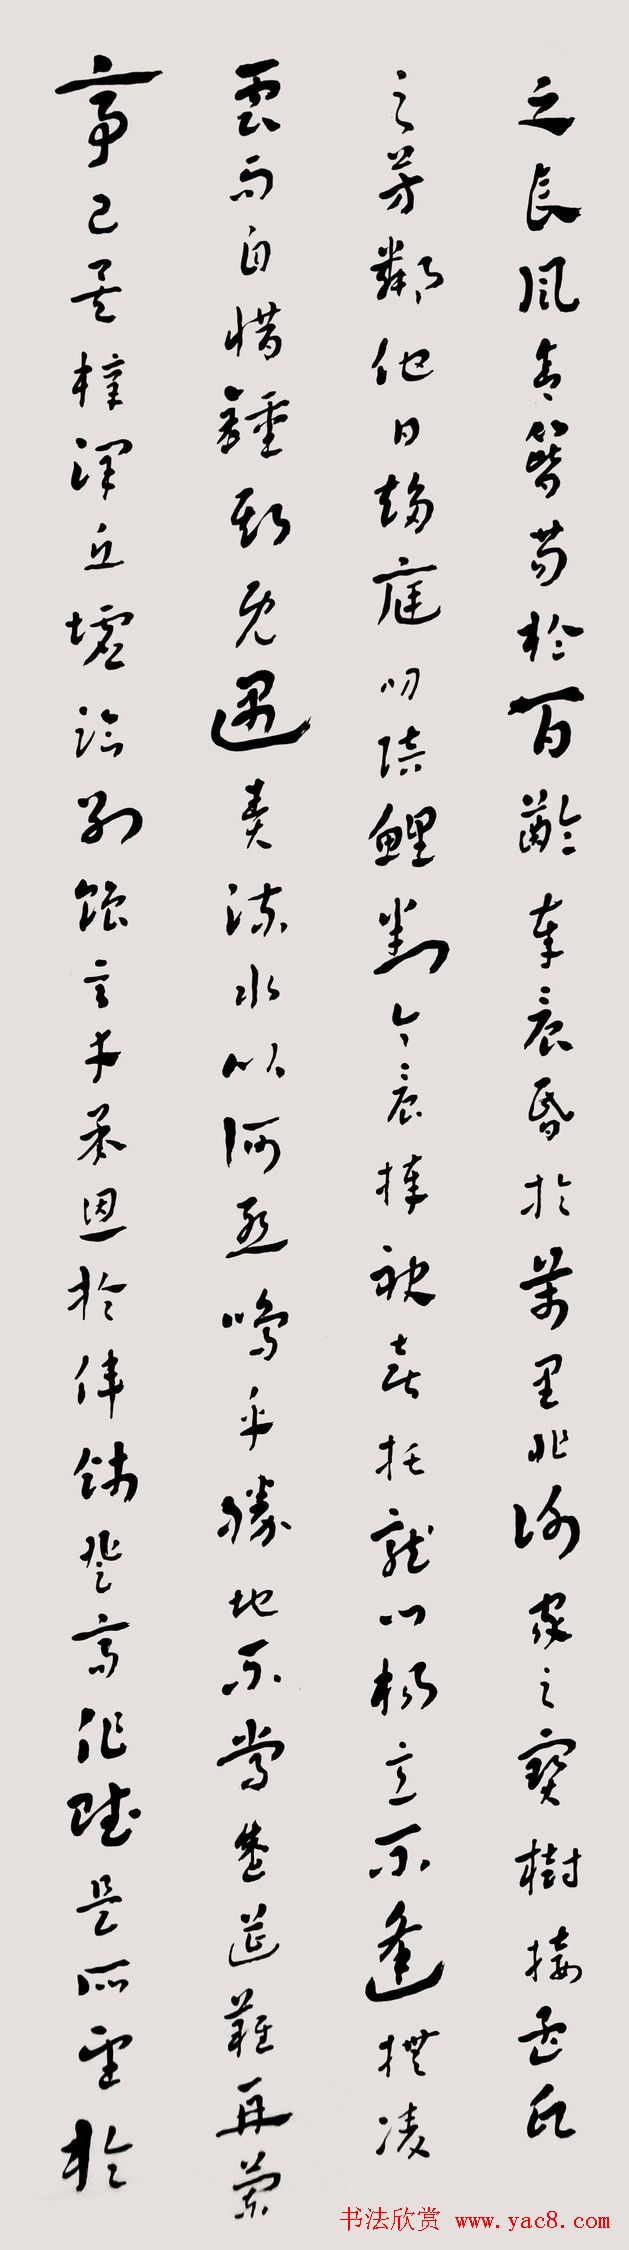 之長風舍簪笏於百齡奉晨昏於萬里非謝家之寶樹接孟氏
之芳鄰他日趨庭叨陪鯉對今晨捧袂喜托龍門楊意不逢撫凌
雲而自惜鍾期既遇奏流水以何慙嗚乎勝地不常盛筵難再蘭
亭已矣梓澤丘墟臨別贈言幸承恩於偉餞登高作賦是所望於
书法欣赏 www.yac8.com